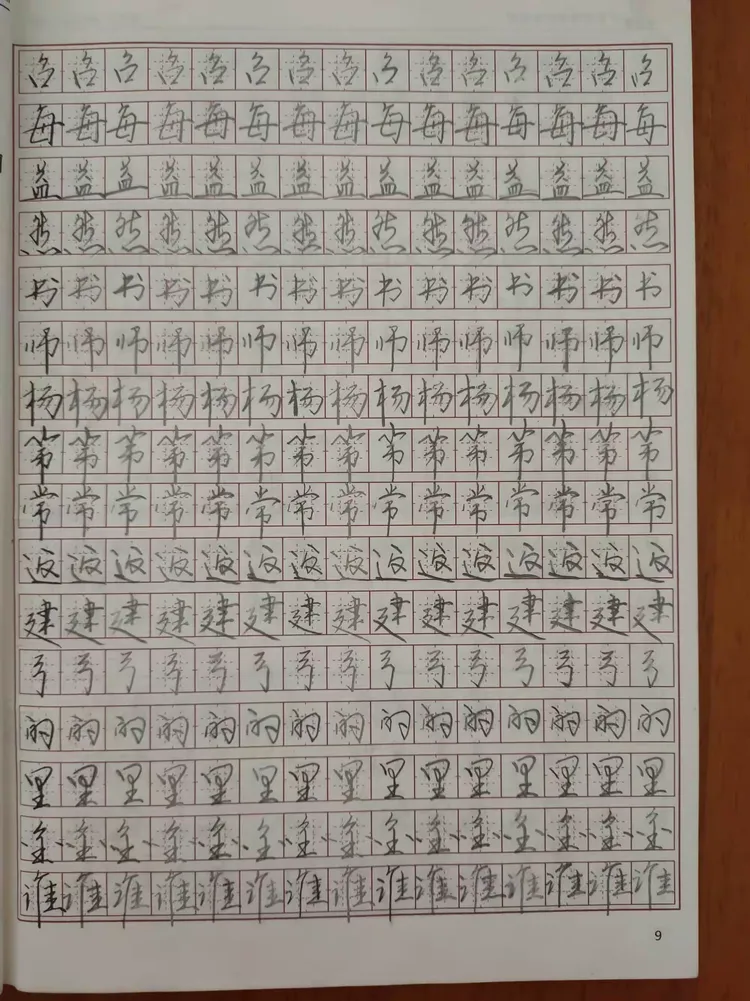 每每每每每每每每每每每每每每每
益益益益益益益益益益益益益益益
然然然然然然然然然然然然然然然
书书书书书书书书书书书书书书书
师师师师师师师师师师师师师师师
杨杨杨杨杨杨杨杨杨杨杨杨杨杨杨
第第第第第第第第第第第第第第第
常常常常常常常常常常常常常常常
返返返返返返返返返返返返返返返
建建建建建建建建建建建建建建建
弓弓弓弓弓弓弓弓弓弓弓弓弓弓弓
的的的的的的的的的的的的的的的
里里里里里里里里里里里里里里里
谁谁谁谁谁谁谁谁谁谁谁谁谁谁谁
9